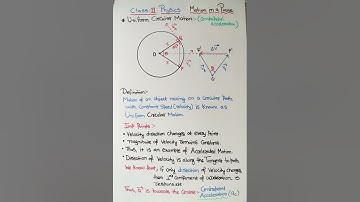 Class-11 Physics Motion in a Plane
* Uniform Circular Motion:- (Centripetal Acceleration)
Definition:-
Motion of an object moving on a Circular Path
with Constant Speed (Velocity) is known as
Uniform Circular Motion.
Imp Points:-
• Velocity direction changes at every Point.
• magnitude of Velocity remains Constant.
• Thus, it is an example of Accelerated Motion.
• Direction of Velocity is along the Tangent to Path.
We know that, if only direction of Velocity changes,
then ⊥er Component of acceleration is
responsible
Thus, a is towards the Centre:- Centripetal Acceleration (ac)